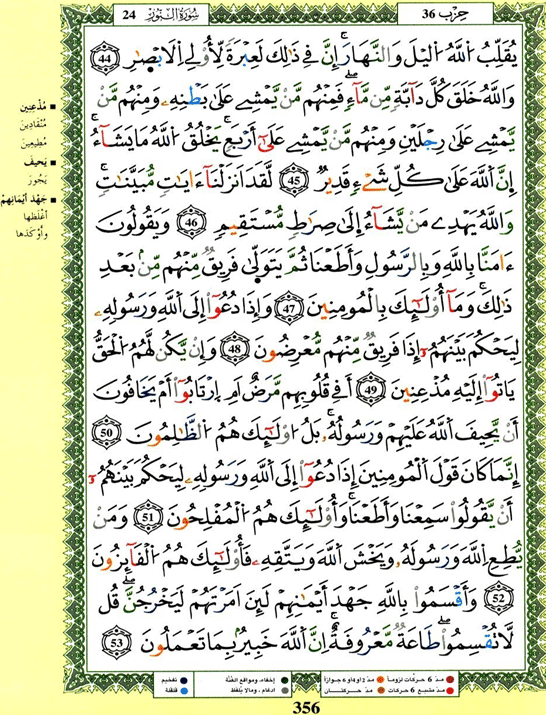 حزب 36
سُورَةُ النُّورِ 24
يُقَلِّبُ اُ۬للَّهُ اُ۬ليْلَ وَالنَّهَارَۖ إِنَّ فِے ذَٰلِكَ لَعِبْرَةٗ لِّأُوْلِے اِ۬لَابْصٰ۪رِۖ 44
وَاللَّهُ خَلَقَ كُلَّ دَآبَّةٖ مِّن مَّآءٖۖ فَمِنْهُم مَّنْ يَّمْشِے عَلَىٰ بَطْنِهِۦ وَمِنْهُم مَّنْ
يَّمْشِے عَلَىٰ رِجْلَيْنِ وَمِنْهُم مَّنْ يَّمْشِے عَلَىٰٓ أَرْبَعٖۖ يَخْلُقُ اُ۬للَّهُ مَا يَشَآءُۖ
إِنَّ اَ۬للَّهَ عَلَىٰ كُلِّ شَےْءٖ قَدِيرٞۖ 45 لَّقَدَ اَنزَلْنَآ ءَايَٰتٖ مُّبَيَّنَٰتٖۖ
وَاللَّهُ يَهْدِے مَنْ يَّشَآءُ اِ۪لَىٰ صِرَٰطٖ مُّسْتَقِيمٖۖ 46 وَيَقُولُونَ
ءَامَنَّا بِاللَّهِ وَبِالرَّسُولِ وَأَطَعْنَا ثُمَّ يَتَوَلَّىٰ فَرِيقٞ مِّنْهُم مِّنۢ بَعْدِ
ذَٰلِكَۖ وَمَآ أُوْلَٰٓئِكَ بِالْمُومِنِينَۖ 47 وَإِذَا دُعُوٓاْ إِلَى اَ۬للَّهِ وَرَسُولِهِۦ
لِيَحْكُمَ بَيْنَهُمُۥٓ إِذَا فَرِيقٞ مِّنْهُم مُّعْرِضُونَۖ 48 وَإِنْ يَّكُن لَّهُمُ اُ۬لْحَقُّ
يَاتُوٓاْ إِلَيْهِ مُذْعِنِينَۖ 49 أَفِے قُلُوبِهِم مَّرَضٌ اَمِ اِ۪رْتَابُوٓاْ أَمْ يَخَافُونَ
أَنْ يَّحِيفَ اَ۬للَّهُ عَلَيْهِمْ وَرَسُولُهُۥۖ بَلُ ا۟وْلَٰٓئِكَ هُمُ اُ۬لظَّٰلِمُونَۖ 50
إِنَّمَا كَانَ قَوْلَ اَ۬لْمُومِنِينَ إِذَا دُعُوٓاْ إِلَى اَ۬للَّهِ وَرَسُولِهِۦ لِيَحْكُمَ بَيْنَهُمُۥٓ
أَنْ يَّقُولُواْ سَمِعْنَا وَأَطَعْنَاۖ وَأُوْلَٰٓئِكَ هُمُ اُ۬لْمُفْلِحُونَۖ 51 وَمَنْ
يُّطِعِ اِ۬للَّهَ وَرَسُولَهُۥ وَيَخْشَ اَ۬للَّهَ وَيَتَّقِهِۦ فَأُوْلَٰٓئِكَ هُمُ اُ۬لْفَآئِزُونَۖ
52 وَأَقْسَمُواْ بِاللَّهِ جَهْدَ أَيْمَٰنِهِمْ لَئِنَ اَمَرْتَهُمْ لَيَخْرُجُنَّۖ قُل
لَّا تُقْسِمُواْۖ طَاعَةٞ مَّعْرُوفَةٌۖ اِنَّ اَ۬للَّهَ خَبِيرُۢ بِمَا تَعْمَلُونَۖ 53
مُذْعِنِينَ
مُنْقَادِينَ
مُطِيعِينَ
يَحِيفَ
يَجُورَ
جَهْدَ أَيْمَانِهِمْ
أَغْلَظَهَا
وَأَوْكَدَهَا
مدّ 6 حركات لزوماً مدّ 2 أو 4 أو 6 جوازاً إخفاء، ومواقع الغُنَّة تفخيم
مدّ مشبع 6 حركات مدّ حركتان ادغام، وما لا يُلفَظ قلقلة
356